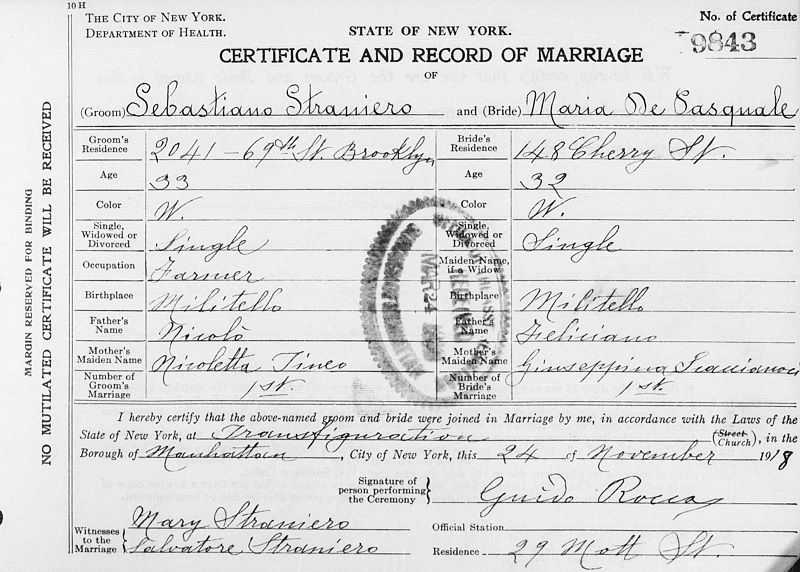 10 H
THE CITY OF NEW YORK.
DEPARTMENT OF HEALTH.
STATE OF NEW YORK.
No. of Certificate
9843
CERTIFICATE AND RECORD OF MARRIAGE
OF
(Groom) Sebastiano Straniero and (Bride) Maria De Pasquale
Groom's Residence 2041-69th St. Brooklyn Bride's Residence 148 Cherry St.
Age 33 Age 32
Color W. Color W.
Single, Widowed or Divorced Single Single, Widowed or Divorced Single
Occupation Farmer Maiden Name, if a Widow
Birthplace Militello Birthplace Militello
Father's Name Nicolò Father's Name Feliciano
Mother's Maiden Name Nicoletta Tineo Mother's Maiden Name Giuseppina
Number of Groom's Marriage 1st Number of Bride's Marriage 1st
MAR 24
I hereby certify that the above-named groom and bride were joined in Marriage by me, in accordance with the Laws of the
State of New York, at Transfiguration (Street Church), in the
Borough of Manhattan, City of New York, this 24 of November 1918
Signature of person performing the Ceremony Guido Rocca
Witnesses to the Marriage Mary Straniero
Salvatore Straniero
Official Station
Residence 29 Mott St.
MARGIN RESERVED FOR BINDING
NO MUTILATED CERTIFICATE WILL BE RECEIVED